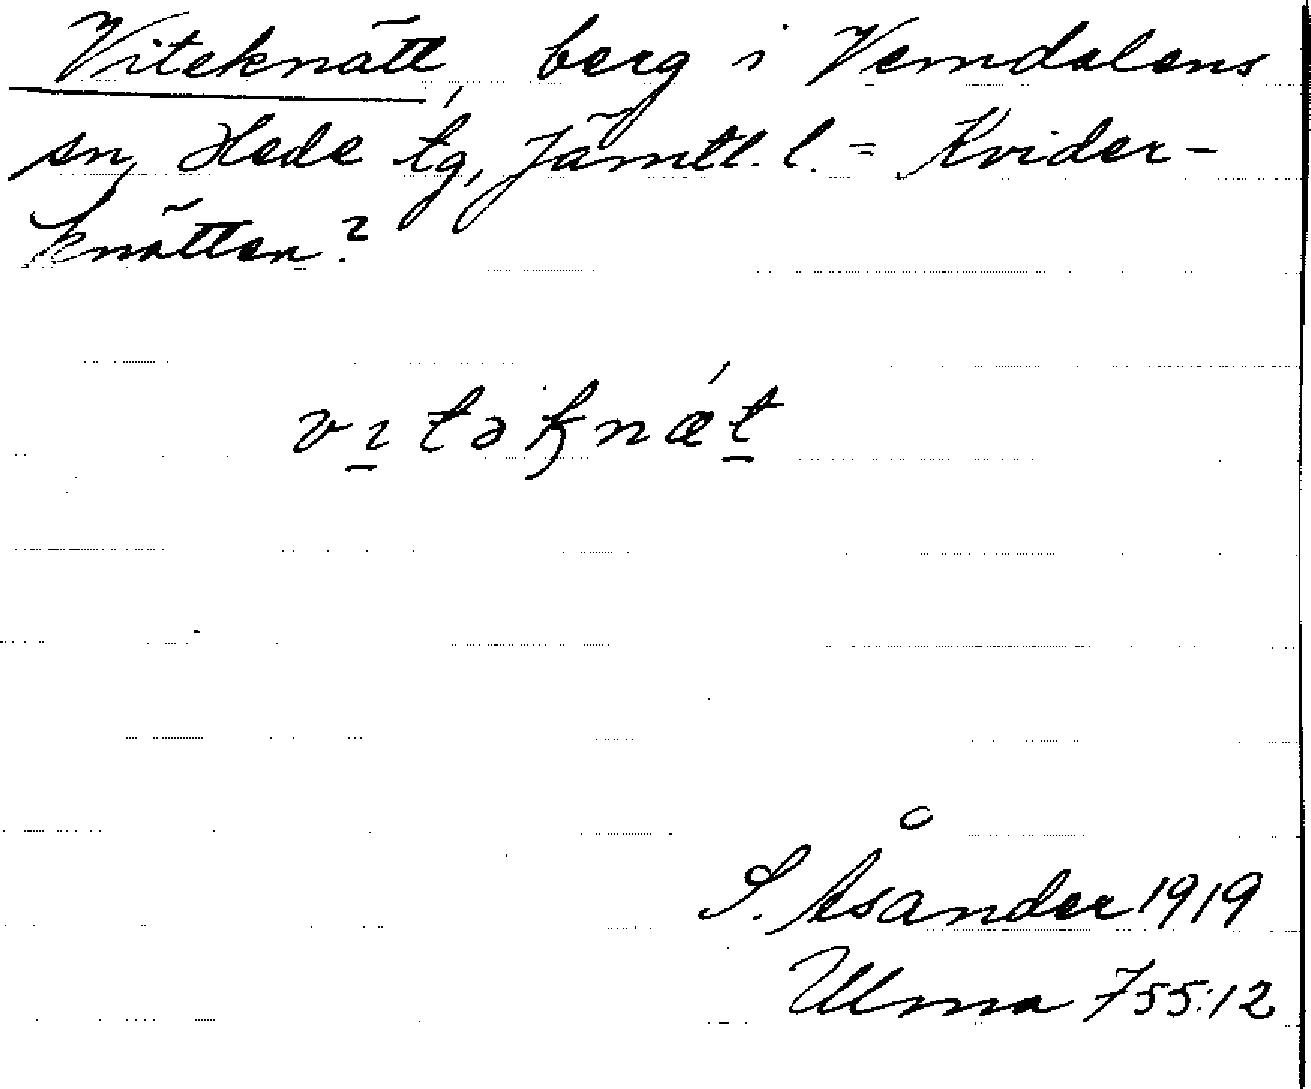 Viteknätt, berg i Vemdalens
sn, Hede tg, Jämtl. l. = Kvider-
knätten?
vɪtəknǽt
S. Åsander 1919
Ulma 755:12